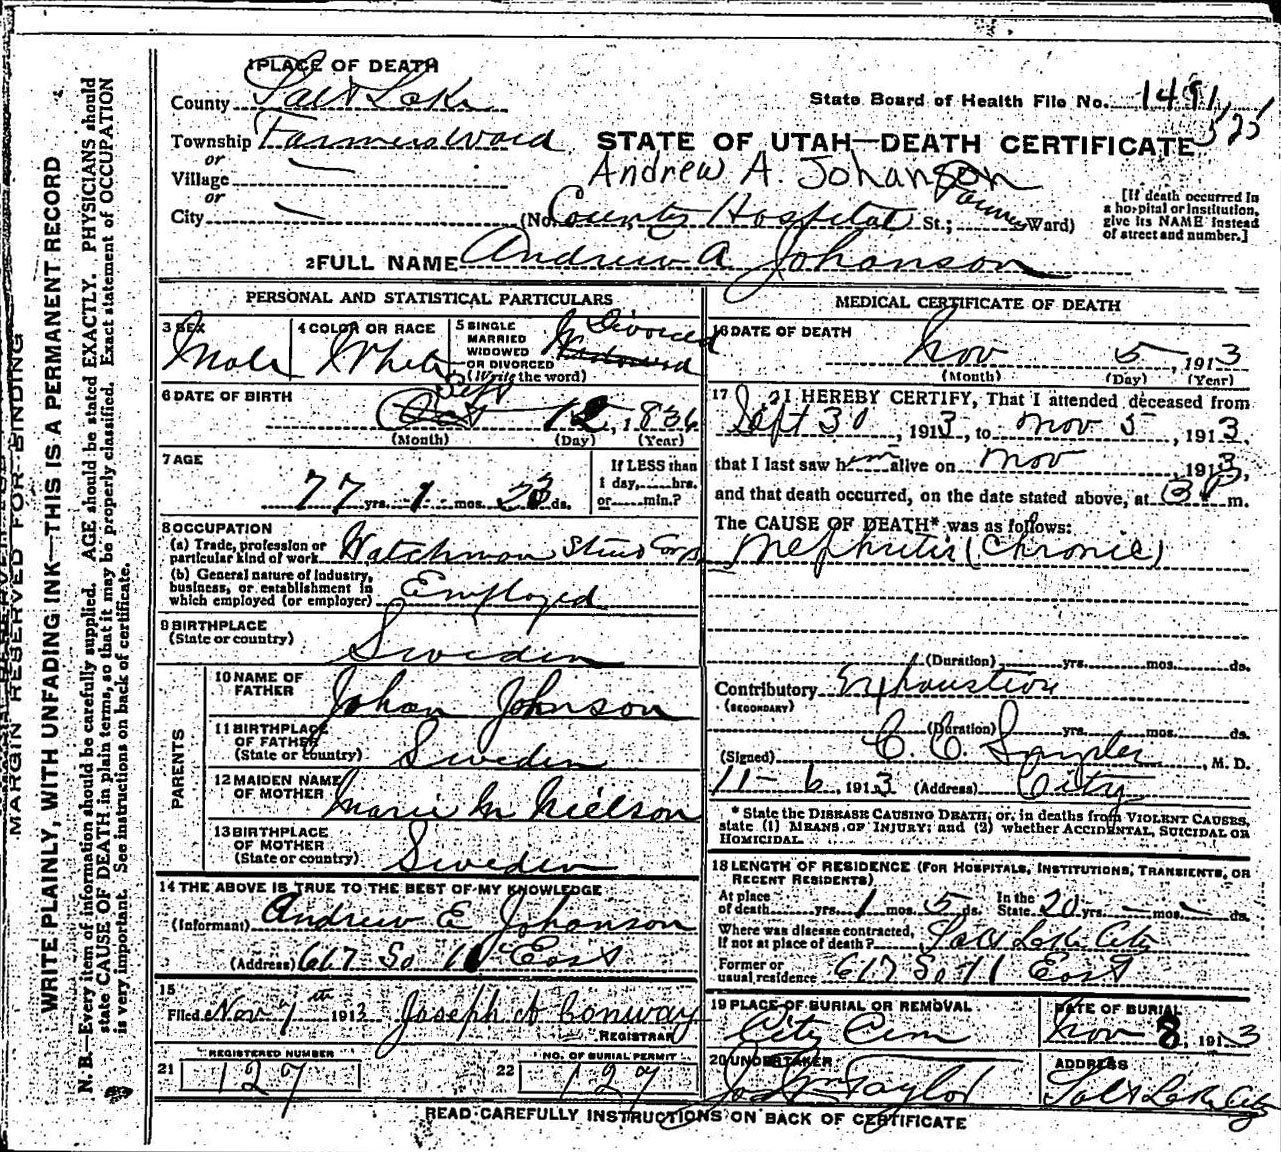 1 PLACE OF DEATH
County Salt Lake
State Board of Health File No. 1491
525
Township Farmers Ward
or
Village
or
City
STATE OF UTAH—DEATH CERTIFICATE
Andrew A. Johanson
(No. County Hospital St.; Farmers Ward)
[If death occurred in a hospital or institution, give its NAME instead of street and number.]
2 FULL NAME Andrew A Johanson
PERSONAL AND STATISTICAL PARTICULARS
3 SEX Male
4 COLOR OR RACE White
5 SINGLE MARRIED WIDOWED OR DIVORCED (Write the word) Divorced Widowed
6 DATE OF BIRTH Sept Oct 12, 1836
(Month) (Day) (Year)
7 AGE 77 yrs. 1 mos. 23 ds.
If LESS than 1 day, hrs. or min.?
8 OCCUPATION
(a) Trade, profession or particular kind of work Watchman
(b) General nature of industry, business, or establishment in which employed (or employer) Employed
9 BIRTHPLACE (State or country) Sweden
PARENTS
10 NAME OF FATHER Johan Johnson
11 BIRTHPLACE OF FATHER (State or country) Sweden
12 MAIDEN NAME OF MOTHER Marie M Nielson
13 BIRTHPLACE OF MOTHER (State or country) Sweden
14 THE ABOVE IS TRUE TO THE BEST OF MY KNOWLEDGE
(Informant) Andrew E Johanson
(Address) 617 So 11 East
15
Filed Nov 7th 1913 Joseph H Conway
REGISTRAR
21 REGISTERED NUMBER 127
22 NO. OF BURIAL PERMIT 127
MEDICAL CERTIFICATE OF DEATH
16 DATE OF DEATH
Nov 5, 1913
(Month) (Day) (Year)
17 I HEREBY CERTIFY, That I attended deceased from
Sept 30, 1913, to Nov 5, 1913,
that I last saw him alive on Nov, 1913,
and that death occurred, on the date stated above, at 3 P m.
The CAUSE OF DEATH* was as follows:
Nephritis (Chronic)
(Duration) yrs. mos. ds.
Contributory Exhaustion
(SECONDARY)
(Duration) yrs. mos. ds.
(Signed) C. C. Snyder, M. D.
11-6, 1913 (Address) City
* State the DISEASE CAUSING DEATH; or, in deaths from VIOLENT CAUSES, state (1) MEANS OF INJURY; and (2) whether ACCIDENTAL, SUICIDAL OR HOMICIDAL.
18 LENGTH OF RESIDENCE (FOR HOSPITALS, INSTITUTIONS, TRANSIENTS, OR RECENT RESIDENTS)
At place of death yrs. 1 mos. 5 ds. In the State 20 yrs. — mos. — ds.
Where was disease contracted, if not at place of death? Salt Lake City
Former or usual residence 617 So 11 East
19 PLACE OF BURIAL OR REMOVAL City Cem
DATE OF BURIAL Nov 8, 1913
20 UNDERTAKER Jos Wm Taylor
ADDRESS Salt Lake City
READ CAREFULLY INSTRUCTIONS ON BACK OF CERTIFICATE
MARGIN RESERVED FOR BINDING
WRITE PLAINLY, WITH UNFADING INK—THIS IS A PERMANENT RECORD
N. B.—Every item of information should be carefully supplied. AGE should be stated EXACTLY. PHYSICIANS should
state CAUSE OF DEATH in plain terms, so that it may be properly classified. Exact statement of OCCUPATION
is very important. See instructions on back of certificate.